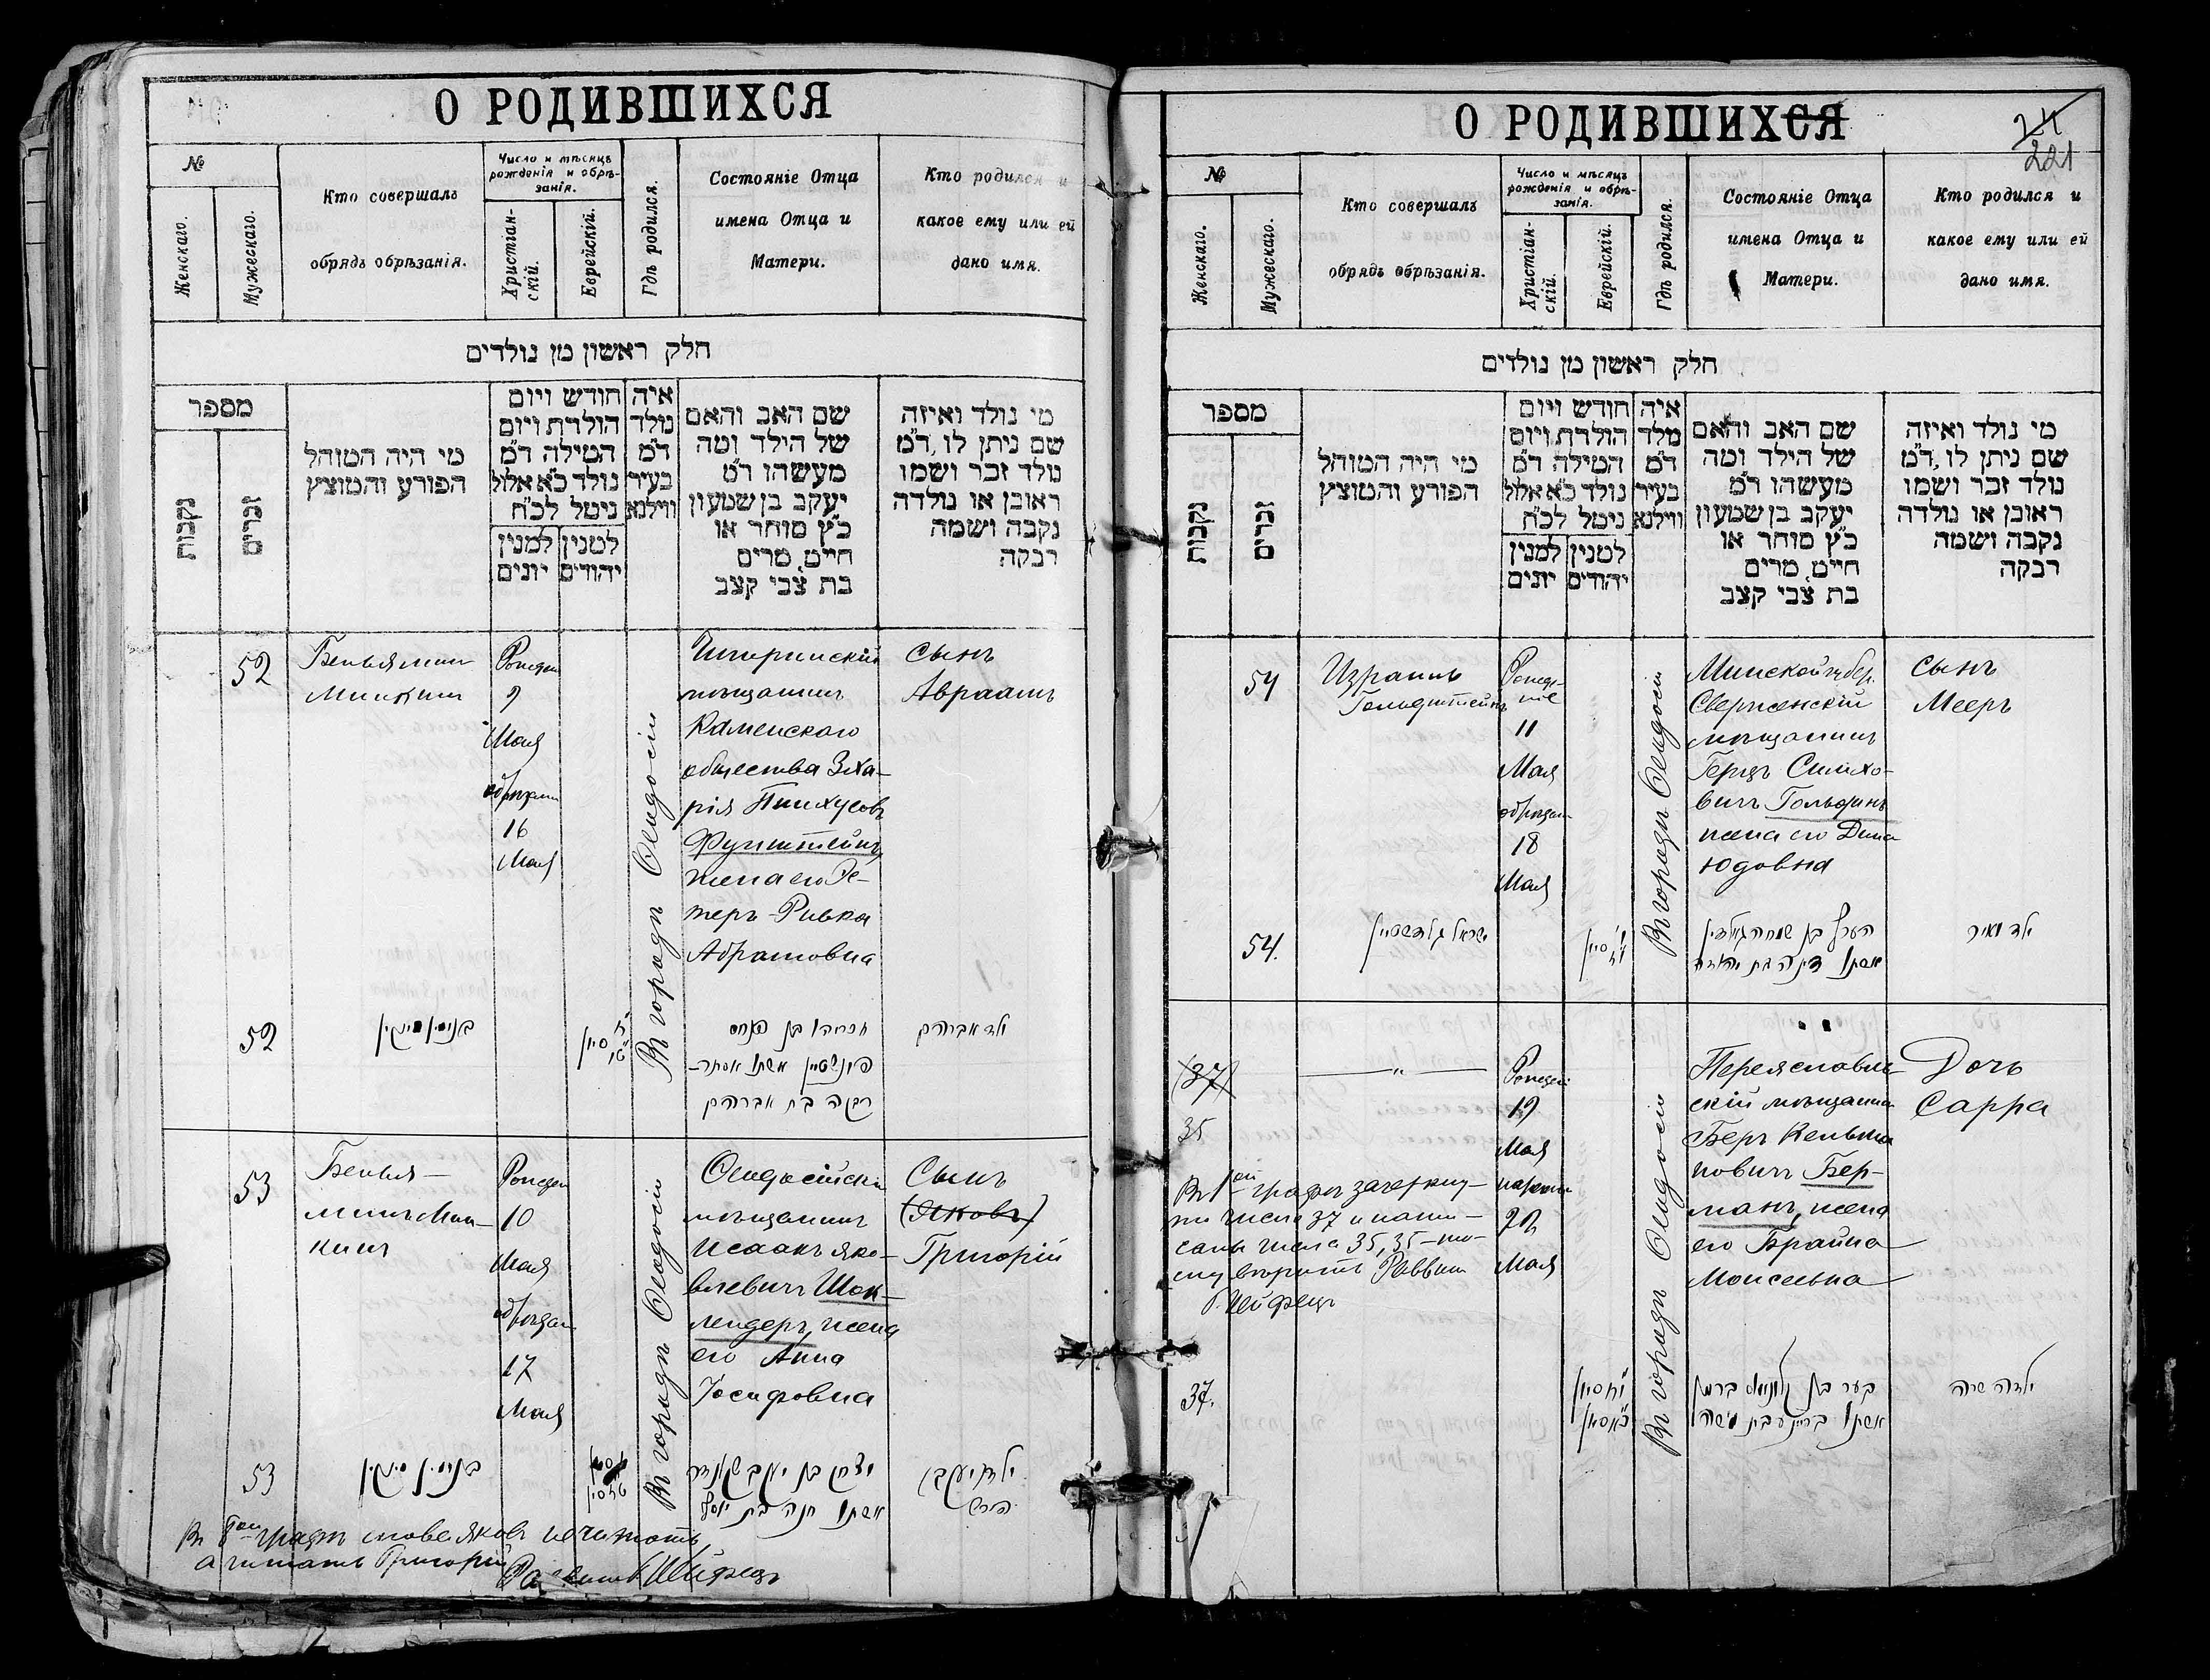 О РОДИВШИХСЯ
№
Женскаго.
Мужескаго.
Кто совершалъ
обрядъ обрѣзанія.
Число и мѣсяцъ
рожденія и обрѣ-
занія.
Христіан-
скій.
Еврейскій.
Гдѣ родился.
Состояніе Отца
имена Отца и
Матери.
Кто родился и
какое ему или ей
дано имя.
חלק ראשון מן נולדים
מספר
נקבות
זכרים
מי היה המוהל
הפורע והמוצץ
חודש ויום
הולדת ויום
המילה ד״מ
נולד כ״א אלול
ניטל לכ״ח
למנין
יונים
למנין
יהודים
איה
נולד
ד״מ
בעיר
ווילנא
שם האב והאם
של הילד ומה
מעשהו ד״מ
יעקב בן שמעון
כ״ץ סוחר או
חייט מרים
בת צבי קצב
מי נולד ואיזה
שם ניתן לו, ד״מ
נולד זכר ושמו
ראובן או נולדה
נקבה ושמה
רבקה
52
Беньяминъ
Минкинъ
9
Мая
обрѣзанъ
16
Мая
Въ городѣ Ѳеодосіи
мѣщанинъ
Каменскаго
общества Зха-
рія Пинхусовъ
Финштейнъ,
жена его Эс-
теръ-Ривка
Абрамовна
сынъ
Авраамъ
52
בנימין מינקין
זכריהו בן פנחס
פינשטיין אשתו אסתר-
רבקה בת אברהם
ילד אברהם
53
Бенья-
минъ Мин-
кинъ
10
Мая
обрѣзанъ
17
Мая
Въ городѣ Ѳеодосіи
Ѳеодосійскій
мѣщанинъ
Исаакъ Яко-
влевичъ Шок-
лендеръ, жена
его Анна
Іосифовна
Сынъ
(Яковъ)
Григорій
53
בנימין מינקין
יצחק בן יעקב
אשתו חנה בת יוסף
ילד יעקב
הירש
Въ 8ой графѣ слово Яковъ не читать,
а читать Григорій
О РОДИВШИХСЯ
24
221
№
Женскаго.
Мужескаго.
Кто совершалъ
обрядъ обрѣзанія.
Число и мѣсяцъ
рожденія и обрѣ-
занія.
Христіан-
скій.
Еврейскій.
Гдѣ родился.
Состояніе Отца
имена Отца и
Матери.
Кто родился и
какое ему или ей
дано имя.
חלק ראשון מן נולדים
מספר
נקבות
זכרים
מי היה המוהל
הפורע והמוצץ
חודש ויום
הולדת ויום
המילה ד״מ
נולד כ״א אלול
ניטל לכ״ח
למנין
יונים
למנין
יהודים
איה
מלד
ד״מ
בעיר
ווילנא
שם האב והאם
של הילד ומה
מעשהו ד״מ
יעקב בן שמעון
כ״ץ סוחר או
חייט מרים
בת צבי קצב
מי נולד ואיזה
שם ניתן לו, ד״מ
נולד זכר ושמו
ראובן או נולדה
נקבה ושמה
רבקה
54
Израиль
Гольдштейнъ
11
Мая
обрѣзан
18
Мая
Въ городѣ Ѳеодосіи
Минской губер.
Сверженскій
мѣщанинъ
Герцъ Симхо-
вичъ Гольдинъ
жена его Дина
Юдовна
сынъ
Мееръ
54.
ישראל גולדשטיין
הערץ בן שמחה גאלדין
אשתו דינה בת יהודה
ילד מאיר
(37)
35
— „ —
19
Мая
Мая
Въ городѣ Ѳеодосіи
Переяславль-
скій мѣщанин
Беръ Кельма-
новичъ Бер-
манъ, жена
его Брайна
Моисеевна
Дочь
Сарра
Въ 1ой графѣ зачеркну-
то число 37 и напи-
сано число 35, 35-то-
му вѣрить Раввинъ
37.
בער בן קלמן ברמן
אשתו בריינע בת משה
ילדה שרה